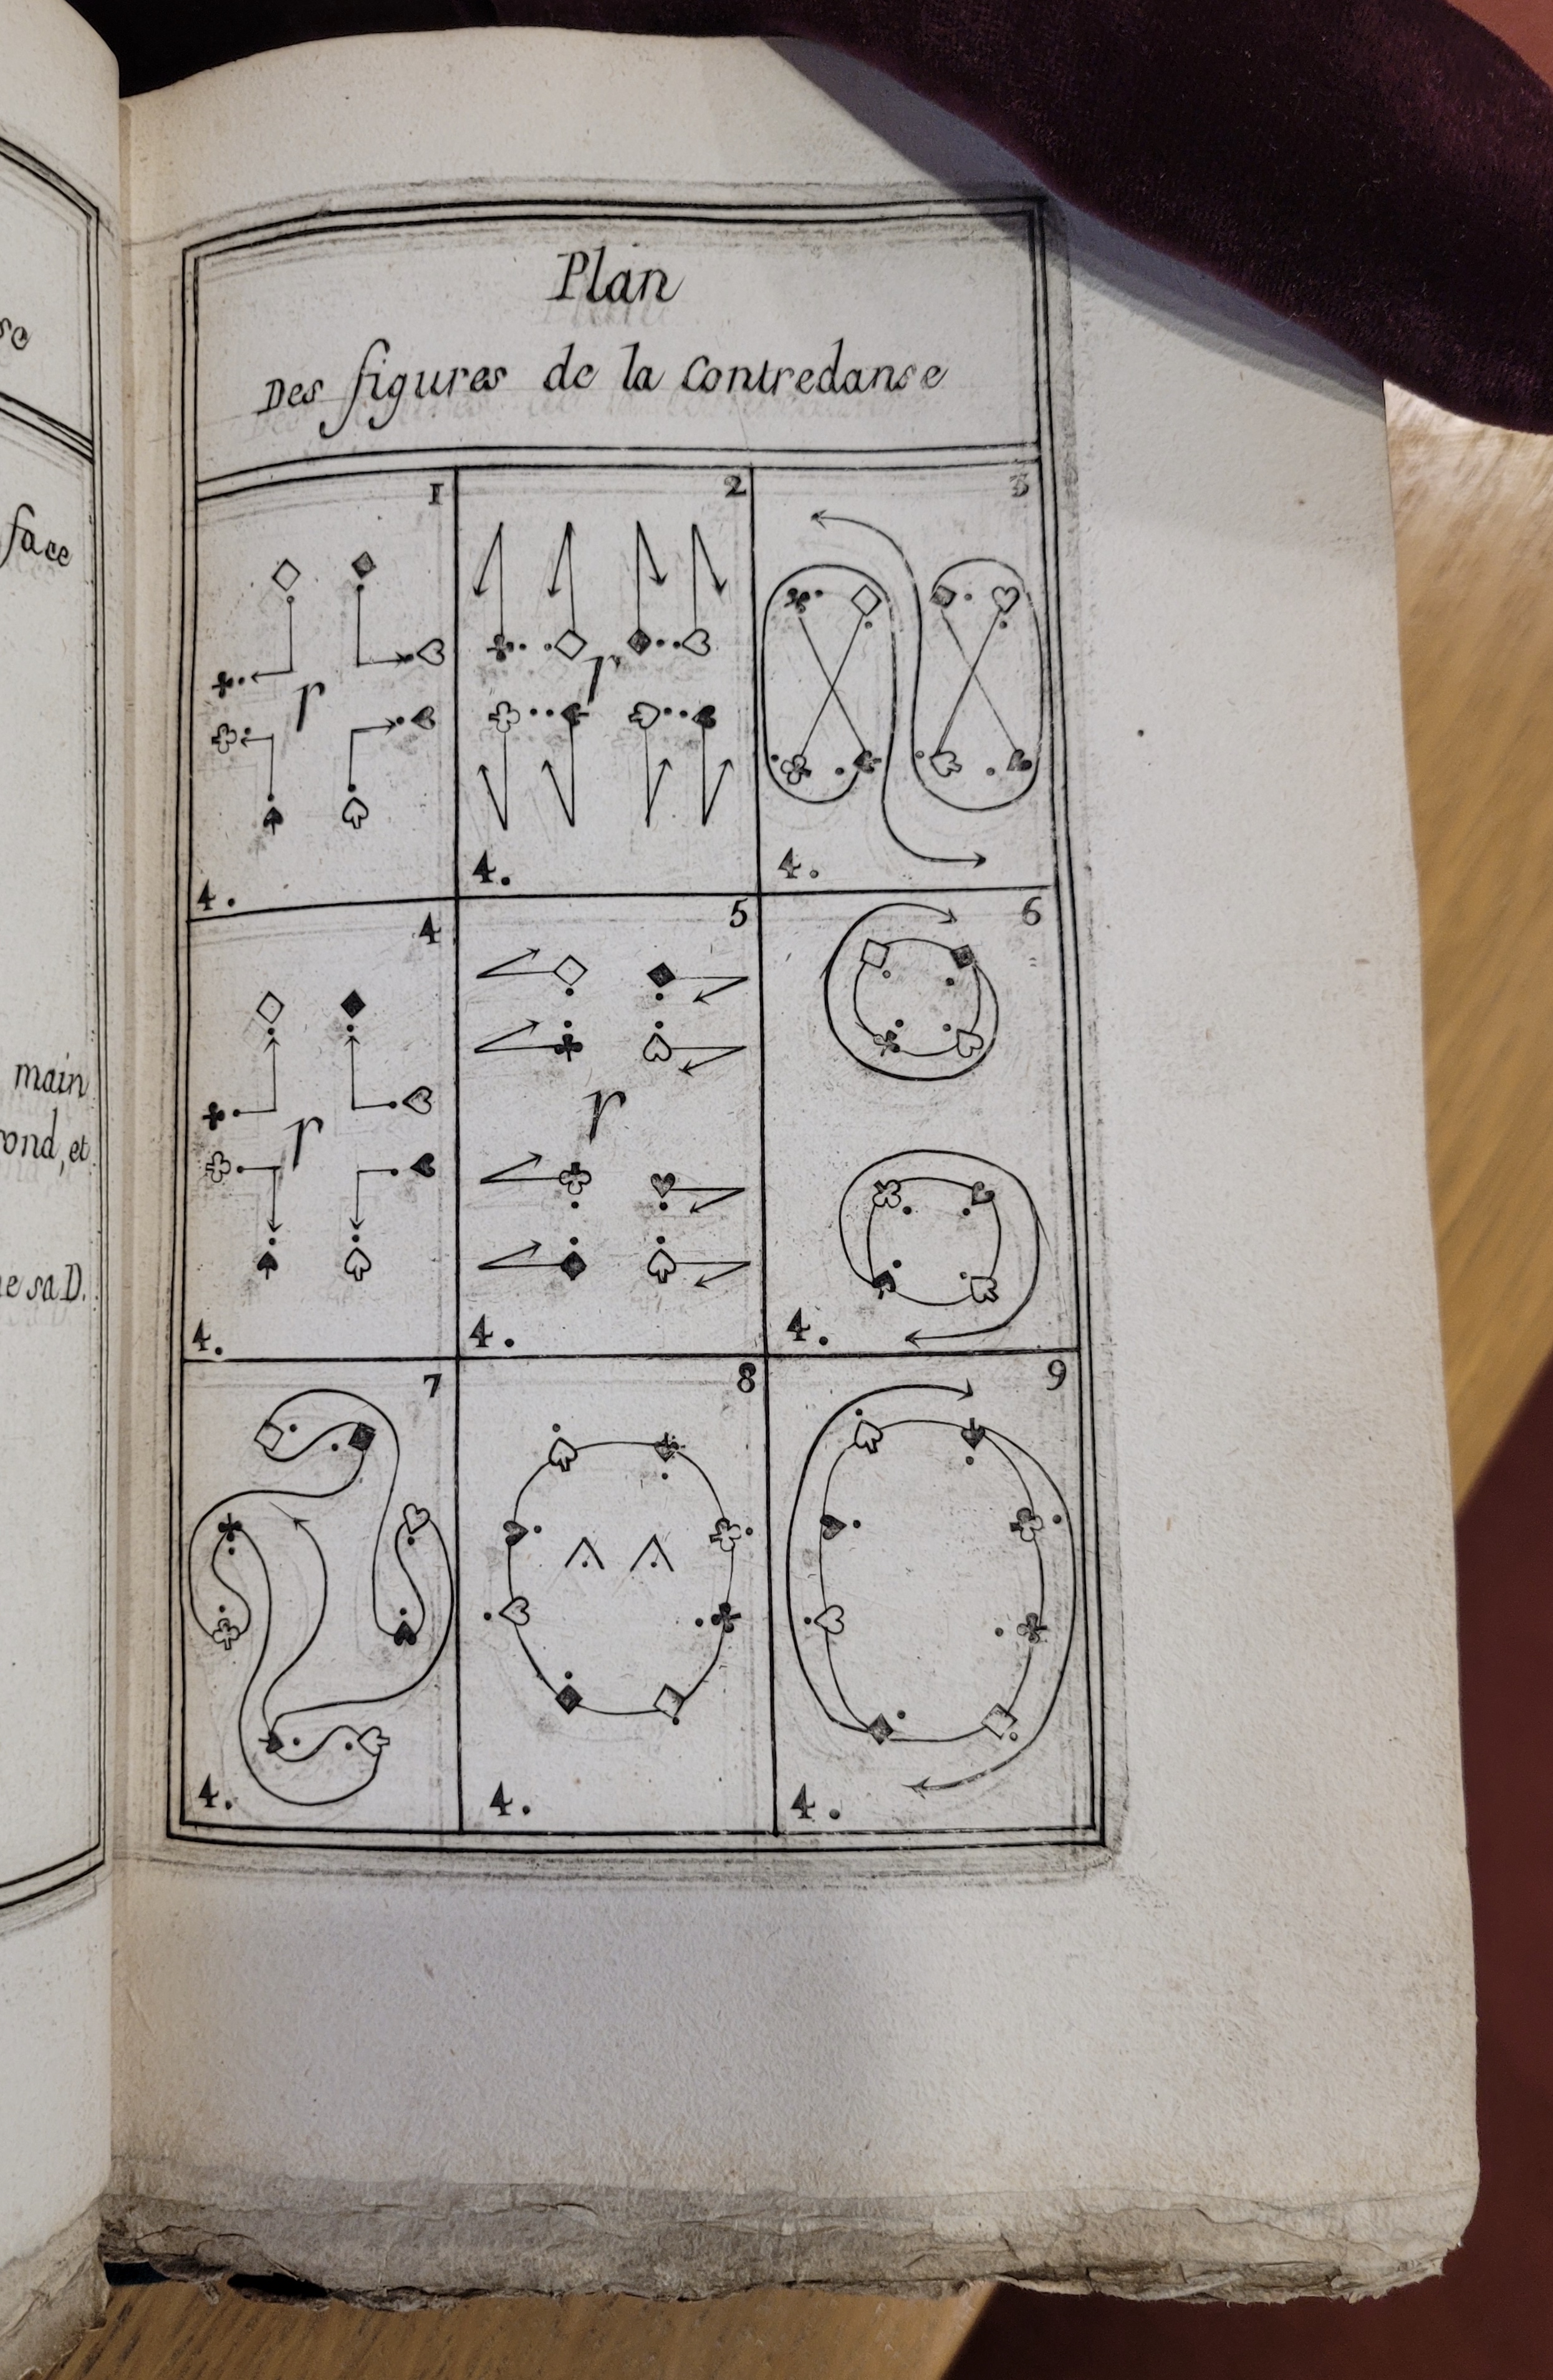 se
face
main
rond, et
sa D.
Plan
Des figures de la Contredanse
1
r
4.
2
r
4.
3
4.
4
r
4.
5
r
4.
6
4.
7
4.
8
4.
9
4.